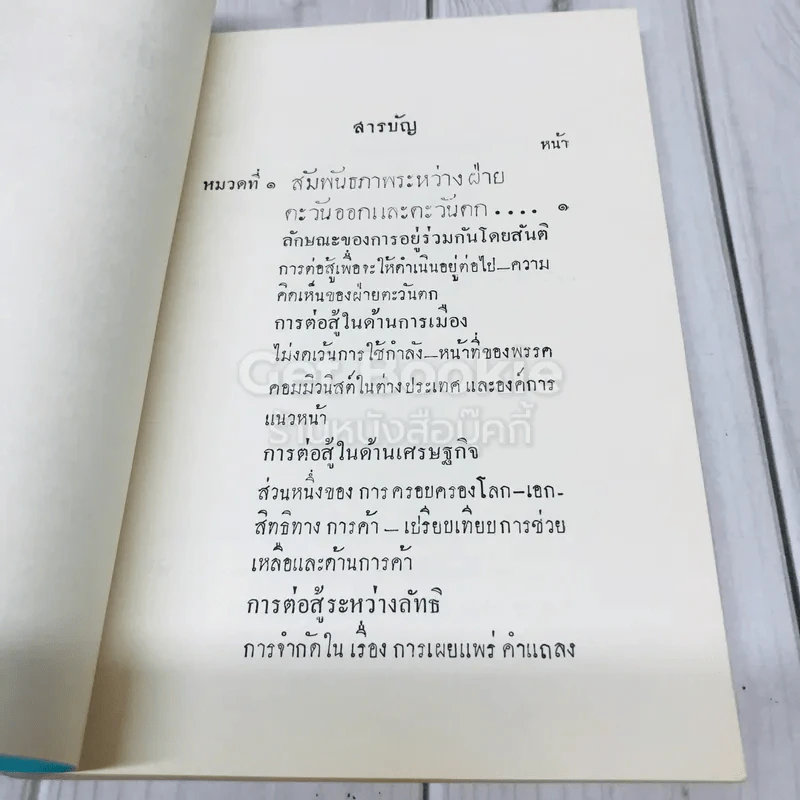 สารบัญ
หน้า
หมวดที่ ๑ สัมพันธภาพระหว่าง ฝ่าย
ตะวันออกและตะวันตก .... ๑
ลักษณะของการอยู่ร่วมกันโดยสันติ
การต่อสู้เพื่อจะให้ดำเนินอยู่ต่อไป—ความ
คิดเห็นของฝ่ายตะวันตก
การต่อสู้ในด้านการเมือง
ไม่งดเว้นการใช้กำลัง—หน้าที่ของพรรค
คอมมิวนิสต์ในต่างประเทศ และองค์การ
แนวหน้า
การต่อสู้ในด้านเศรษฐกิจ
ส่วนหนึ่งของ การ ครอบครองโลก—เอก-
สิทธิทาง การค้า — เปรียบเทียบ การช่วย
เหลือและด้านการค้า
การต่อสู้ระหว่างลัทธิ
การจำกัดใน เรื่อง การเผยแพร่ คำแถลง
Get Bookie
ร้านหนังสือบุ๊คกี้